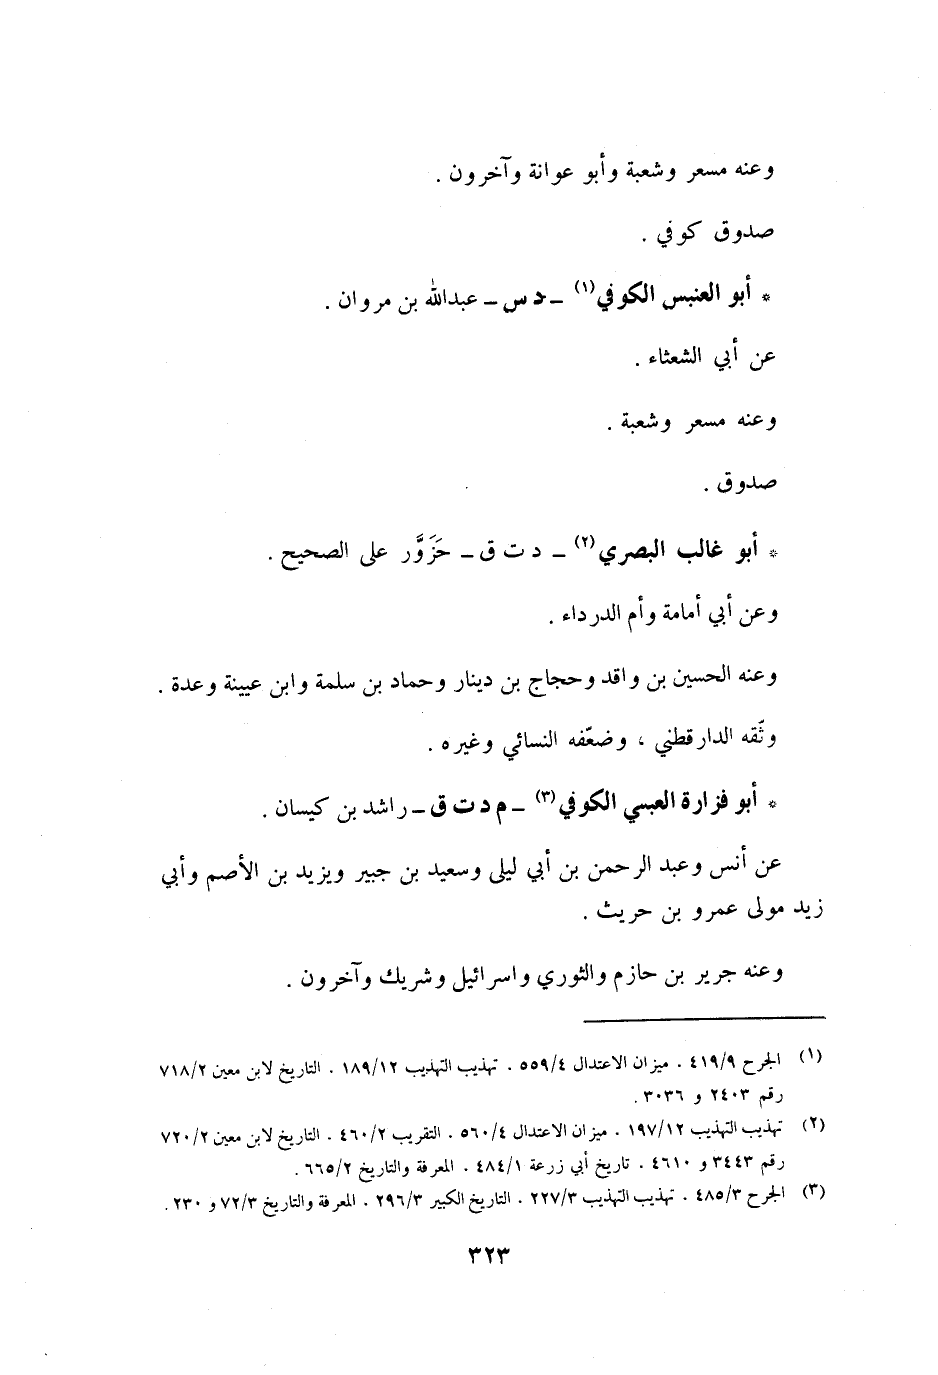 وعنه مسعر وشعبة وأبو عوانة وآخرون .
صدوق كوفي .
* أبو العنبس الكوفي(١) ـ د س ـ عبدالله بن مروان .
عن أبي الشعثاء .
وعنه مسعر وشعبة .
صدوق .
* أبو غالب البصري(٢) ـ د ت ق ـ حَزَوَّر على الصحيح .
وعن أبي أمامة وأم الدرداء .
وعنه الحسين بن واقد وحجاج بن دينار وحماد بن سلمة وابن عيينة وعدة .
وثّقه الدارقطني ، وضعّفه النسائي وغيره .
* أبو فزارة العبسي الكوفي(٣) ـ م د ت ق ـ راشد بن كيسان .
عن أنس وعبد الرحمن بن أبي ليلى وسعيد بن جبير ويزيد بن الأصم وأبي
زيد مولى عمرو بن حريث .
وعنه جرير بن حازم والثوري واسرائيل وشريك وآخرون .
(١) الجرح ٤١٩/٩ . ميزان الاعتدال ٥٥٩/٤ . تهذيب التهذيب ١٨٩/١٢ . التاريخ لابن معين ٧١٨/٢
رقم ٢٤٠٣ و ٣٠٣٦ .
(٢) تهذيب التهذيب ١٩٧/١٢ . ميزان الاعتدال ٥٦٠/٤ . التقريب ٤٦٠/٢ . التاريخ لابن معين ٧٢٠/٢
رقم ٣٤٤٣ و ٤٦١٠ . تاريخ أبي زرعة ٤٨٤/١ . المعرفة والتاريخ ٦٦٥/٢ .
(٣) الجرح ٤٨٥/٣ . تهذيب التهذيب ٢٢٧/٣ . التاريخ الكبير ٢٩٦/٣ . المعرفة والتاريخ ٧٢/٣ و ٢٣٠ .
٣٢٣